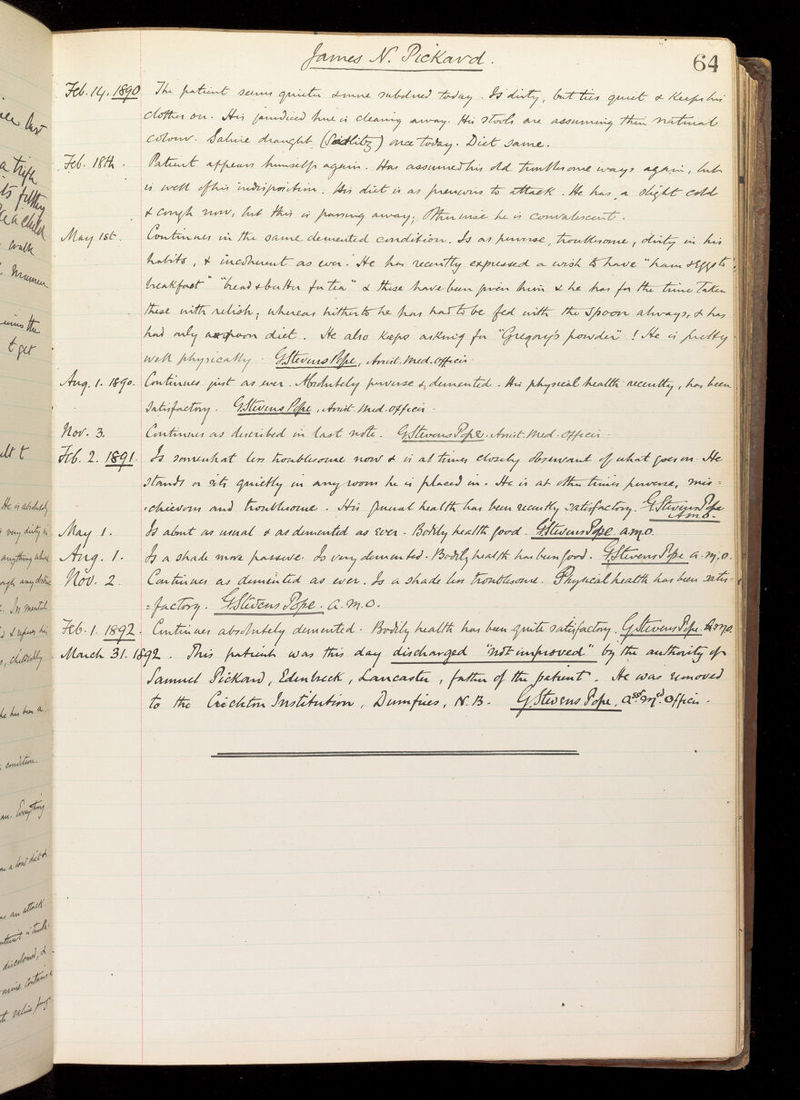 James N. Pickard.
64
Feb. 14. 1890 The patient seems quieter & more subdued today. Is dirty, but lies quiet & keeps his
clothes on. His jaundiced hue is clearing away. His stools are assuming their natural
colour. Saline draught (Seidlitz) once today. Diet same.
Feb. 18th. Patient appears himself again. Has assumed his old troublesome ways again, but
is well of his indisposition. His diet is as previous to attack. He has a slight cold
& cough now, but this is passing away; otherwise he is convalescent.
May 1st. Continues in the same demented condition. Is as perverse, troublesome, dirty in his
habits, & incoherent as ever. He has recently expressed a wish to have "ham & eggs to
breakfast" "bread & butter for tea" & these have been given him & he has for the time taken
these with relish; whereas hitherto he has had to be fed with the spoon always, & has
had only a spoon diet. He also keeps asking for "Gregory's powder"! He is pretty
well physically. G. Stevens Pope, Assist. Med. Officer.
Aug. 1. 1890. Continues just as ever. Absolutely perverse & demented. His physical health recently, has been
satisfactory. G. Stevens Pope, Assist. Med. Officer.
Nov. 3. Continues as described in last note. G. Stevens Pope. Assist. Med. Officer.
Feb. 2. 1891. Is somewhat less troublesome now & is at times closely observant of what goes on. He
stands or sits quietly in any room he is placed in. He is at other times perverse, mis=
=chievous and troublesome. His general health has been recently satisfactory. G. Stevens Pope
A.M.O.
May 1. Is about as usual & as demented as ever. Bodily health good. G. Stevens Pope. a.m.o.
Aug. 1. Is a shade more passive. Is very demented. Bodily health has been good. G. Stevens Pope a.m.o.
Nov. 2. Continues as demented as ever. Is a shade less troublesome. Physical health has been satis=
=factory. G. Stevens Pope. a.m.o.
Feb. 1. 1892. Continues absolutely demented. Bodily health has been quite satisfactory. G. Stevens Pope. a.m.o.
March 31. 1892. This patient was this day discharged "not improved" by the authority of
Samuel Pickard, Edenbreck, Lancaster, father of the patient. He was removed
to the Crichton Institution, Dumfries, N.B. G. Stevens Pope, Asst. Md. Officer.